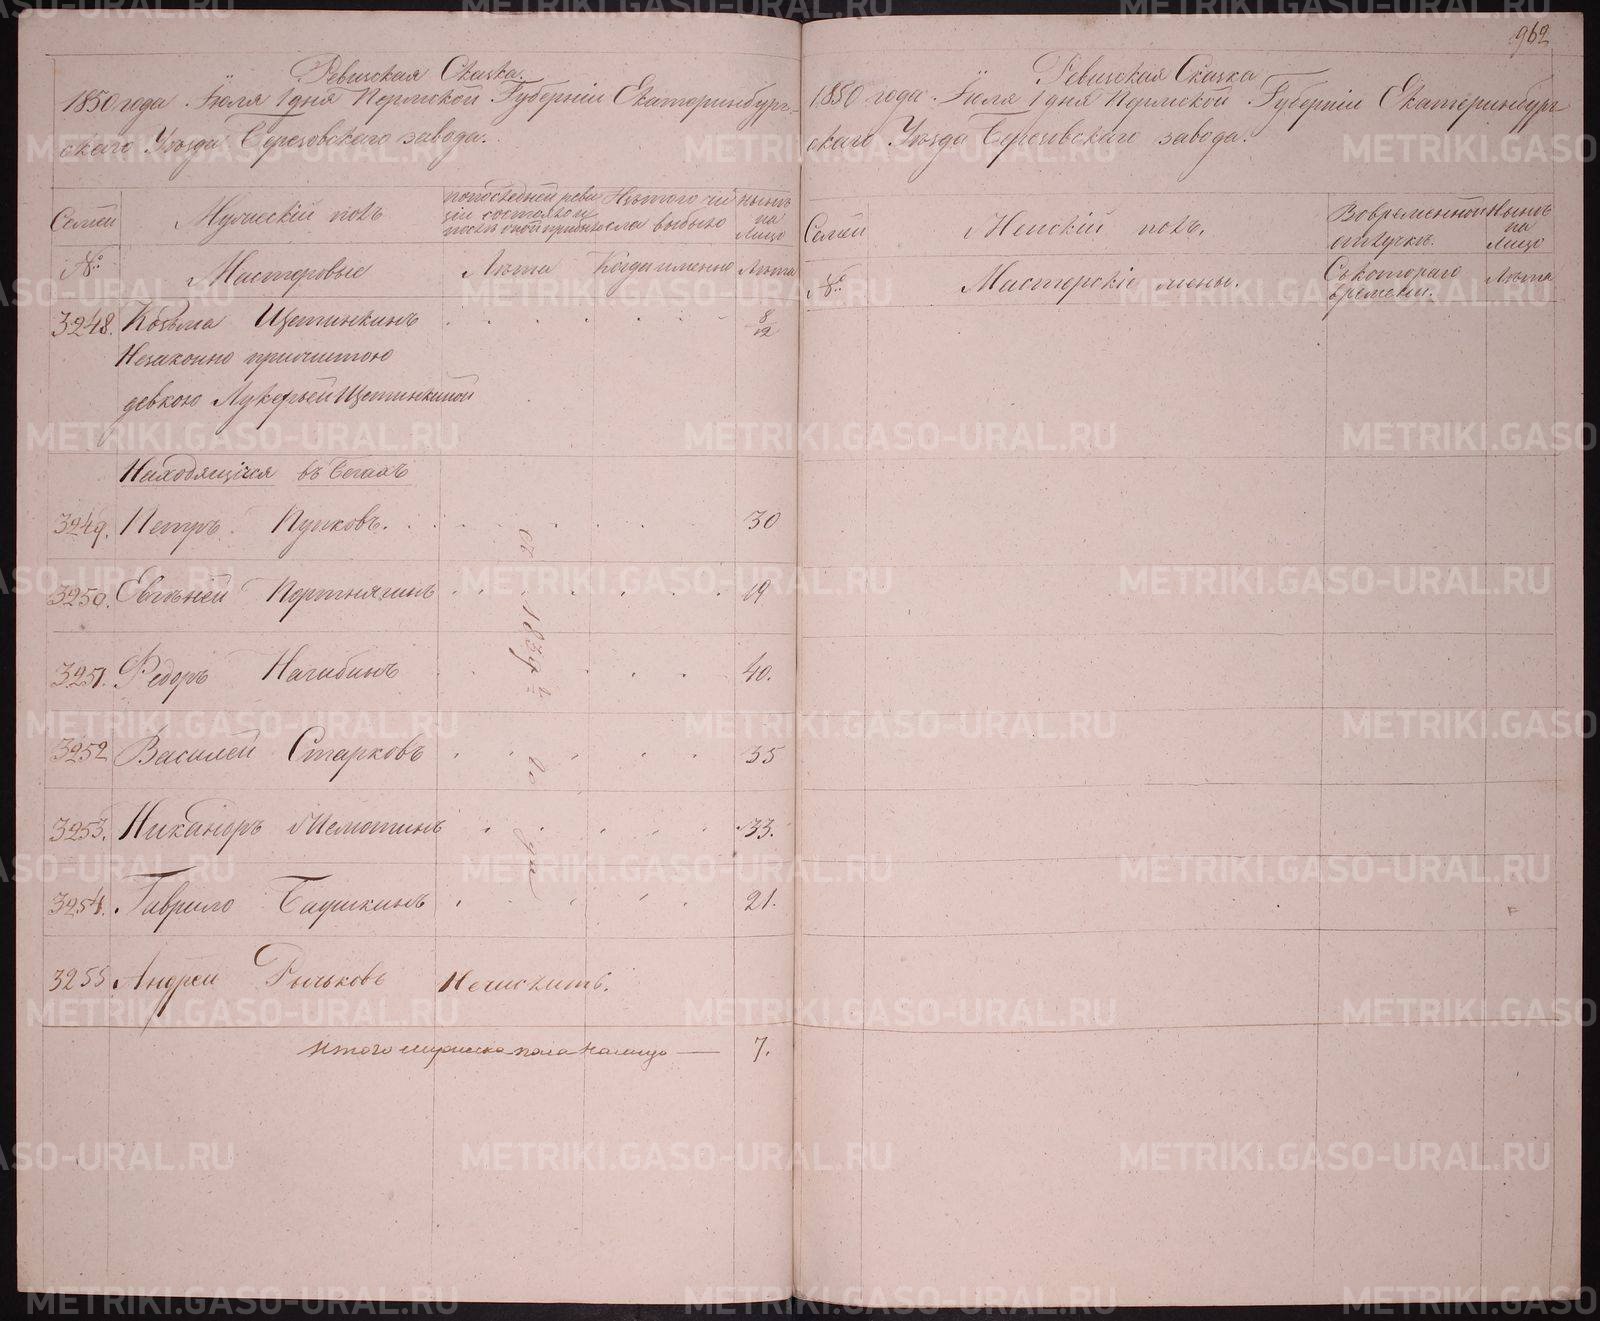 962
Ревизская Сказка.
1850 года Іюля 1 дня Пермской Губерніи Екатеринбург-
скаго Уѣзда Березовскаго завода.
Семьи
Мужескій полъ
по последней реви
зіи состояло и
после оной прибыло
Изъ того чи
сла выбыло
Нынѣ
на
Лицо
№
Мастеровые
Лѣта
Когда именно
Лѣта
3248. Козьма Щетинкинъ 8/12
Незаконно прижитою
девкою Лукерьей Щетинкиной
Находящіяся въ бегахъ
3249. Петръ Пупковъ. 30
3250. Евгеней Портнягинъ 19
3251. Федоръ Нагибинъ 40.
3252 Василей Старковъ 35
3253. Никаноръ 33.
3254. Гаврило Баушкинъ 21.
3255 Андрей Рычьковъ Неислить.
Итого мужеска пола налицо — 7.
Ревизская Сказка
1850 года Іюля 1 дня Пермской Губерніи Екатеринбург
скаго Уѣзда Березовскаго завода.
Семьи
Женскій полъ.
Во временной
отлучкѣ.
Нынѣ
на
Лицо
№
Мастерскіе жены.
Съ котораго
времени.
Лѣта
METRIKI.GASO-URAL.RU